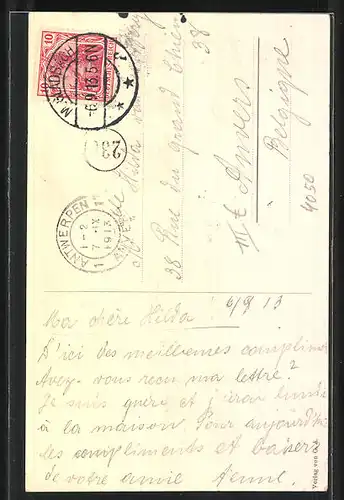 10
M.GLADBACH
-6.9.13.5-6N
1
* *
38
232
ANTWERPEN
1-2
7 IX
1913
ANVERS
Melle Hilda
c/o
38 Rue du Grand Chien
Anvers
Belgique
4050
6/9 13
Ma chère Hilda!
D'ici des meilleures compliments
Avez-vous recu ma lettre?
Je suis guéri et j'irai lundi
à la maison. Pour aujourd'hui
les compliments et baisers
de votre amie Aenne.
Verlag von